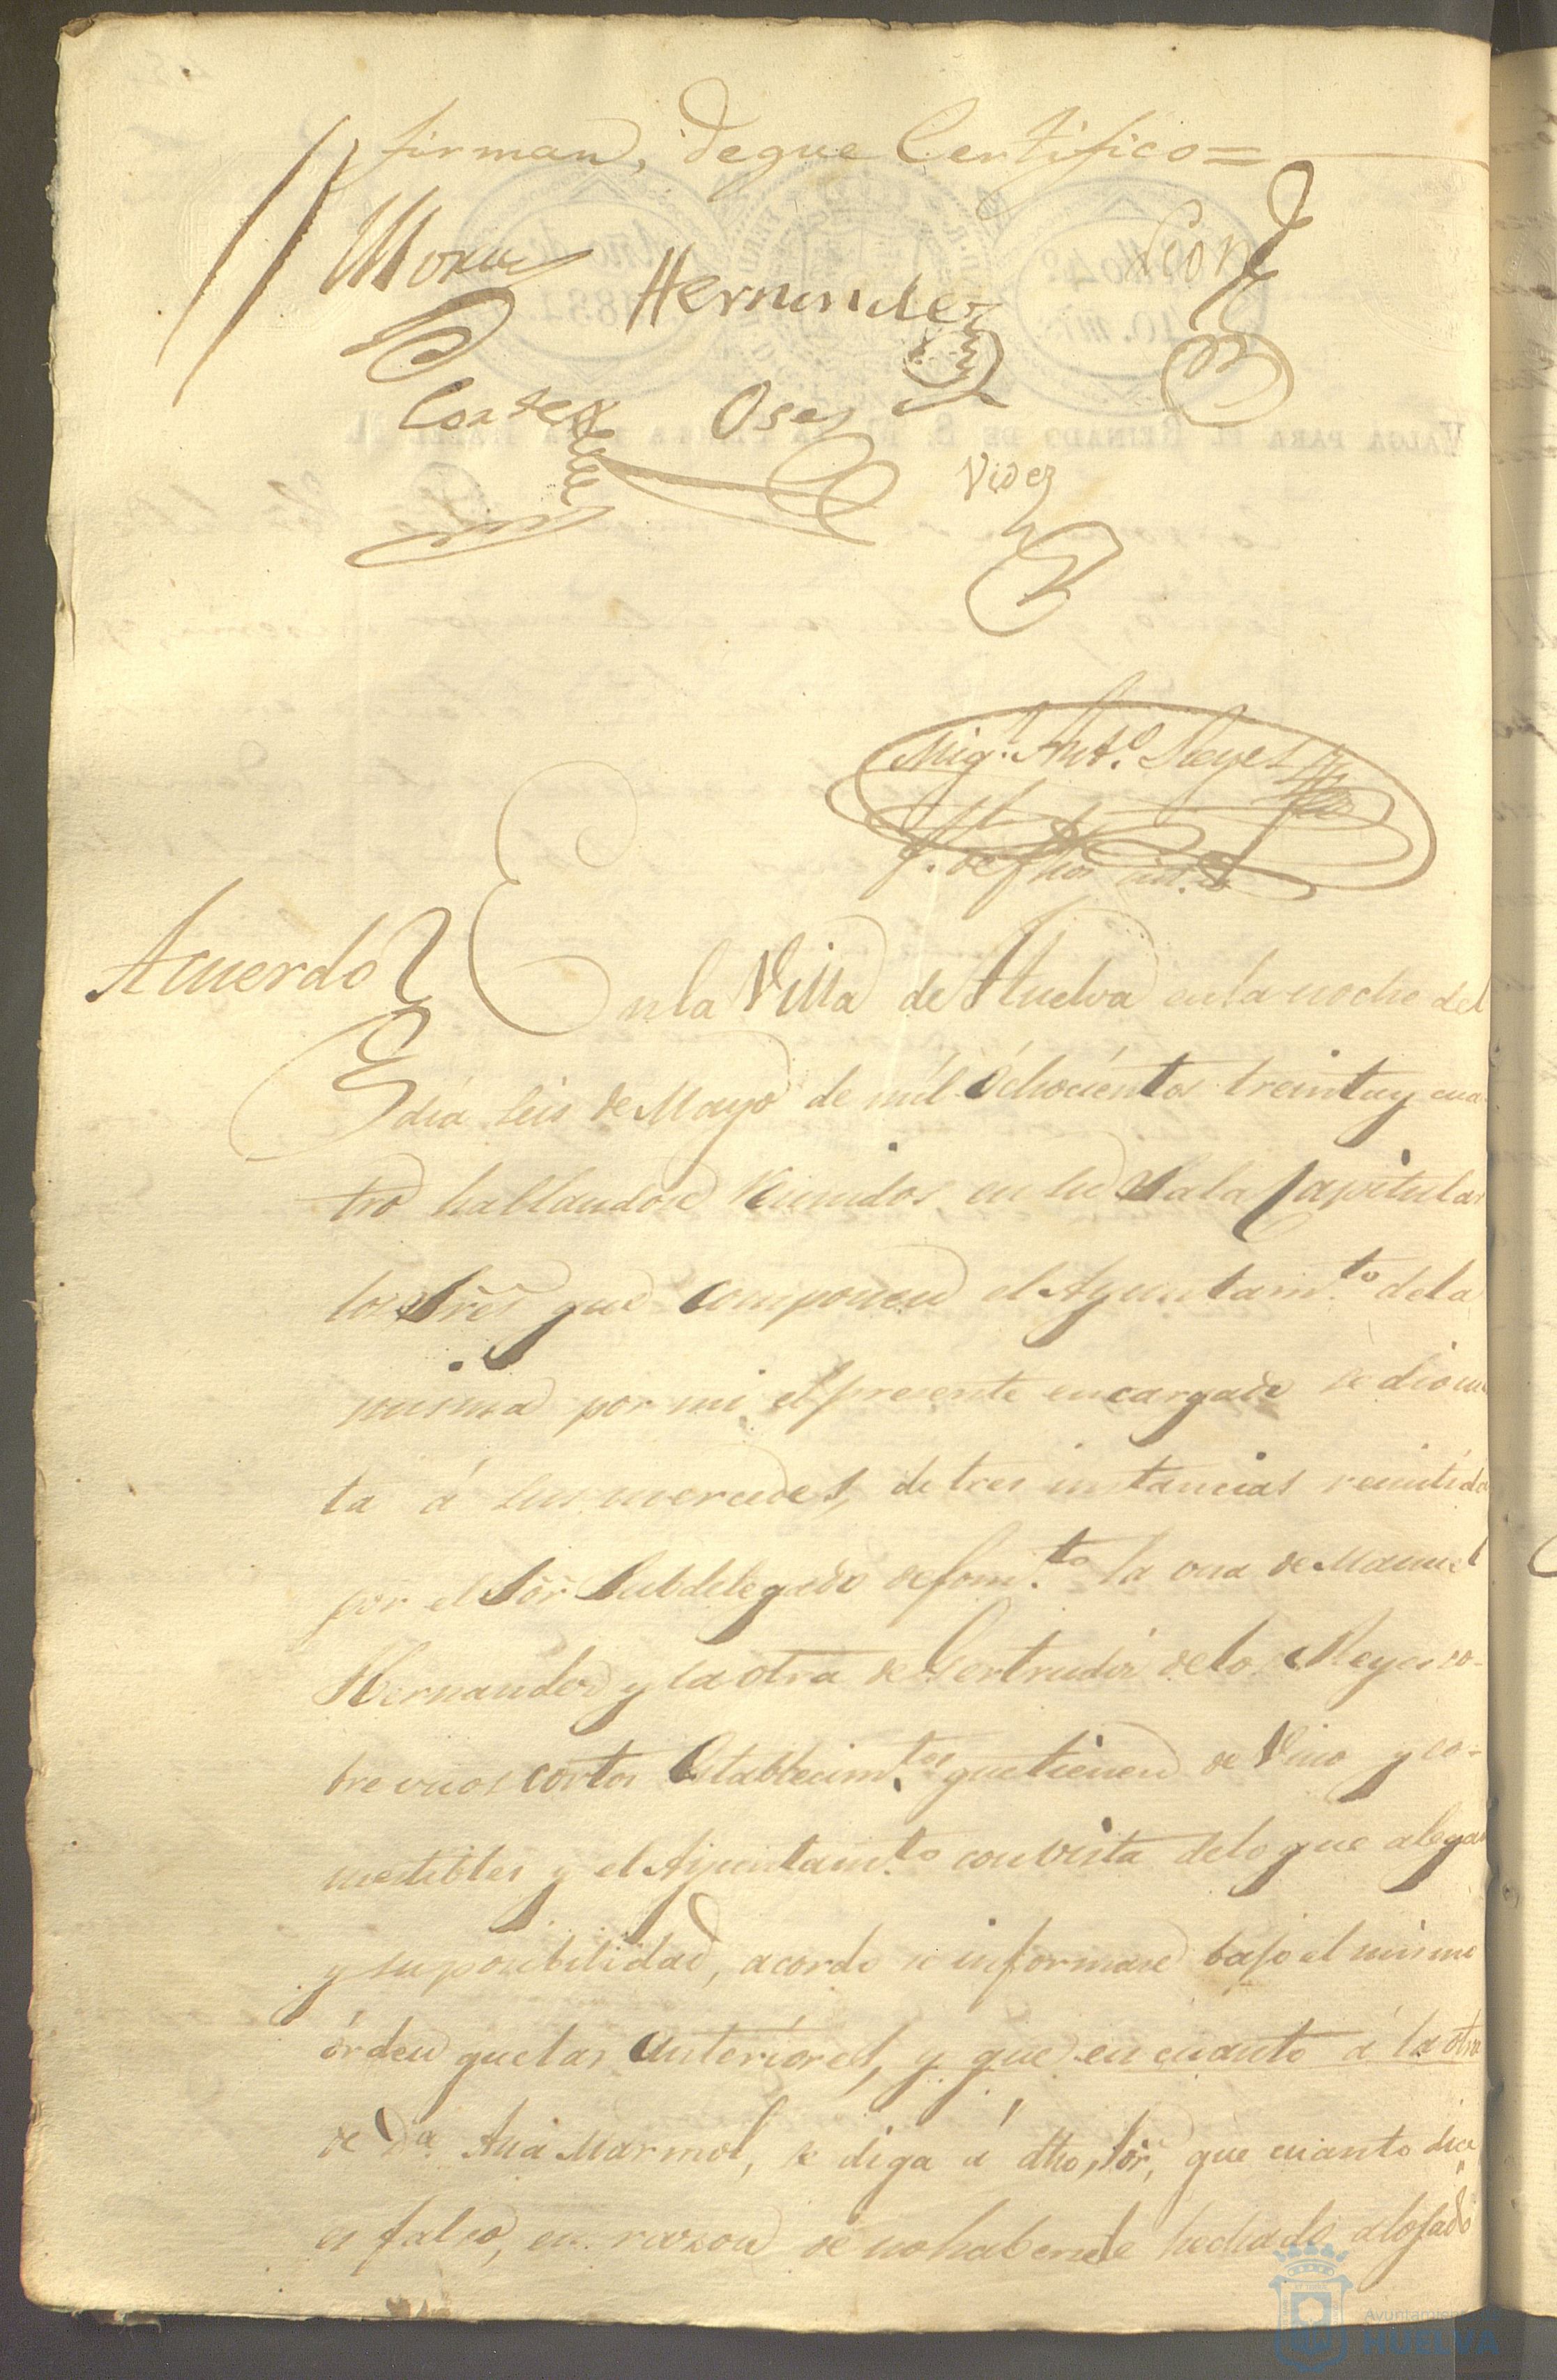 firman, deque Certifico=
Mora
Hernandez
Leon
Cortes
Oses
Videz
Mig.l Ant.o Reyes
Acuerdo
En la Villa de Huelva en la noche del
dia seis de Mayo de mil ochocientos treinta y cua
tro hallandose reunidos en su Sala Capitular
los Sres que componen el Ayuntam.to de la
misma por mi el presente encargado se dio cu
ta á sus mercedes, de tres instancias remitida
por el Sor Subdelegado de fom.to la una de Manuel
Hernandez y la otra de Gertrudis de los Reyes so-
bre unos cortos Establecim.tos que tienen de Vino y co-
mestibles y el Ayuntam.to con vista de lo que alegan
y su posibilidad, acordo se informase bajo el mismo
órden que las anteriores, y que en cuanto á la otra
de D.a Ana Marmol, se diga á dho, Sor, que cuanto dice
es falso, en razon de no haberse le hechado alojado
Ayuntamiento
HUELVA